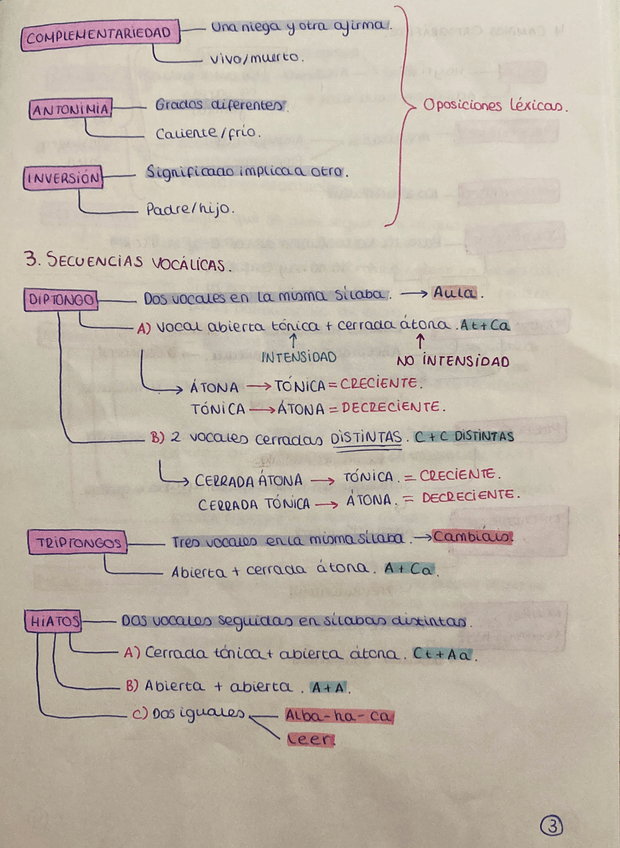 COMPLEMENTARIEDAD — Una niega y otra afirma.
vivo/muerto.
ANTONIMIA — Grados diferentes.
Caliente/frío.
Oposiciones léxicas.
INVERSIÓN — Significado implica a otro.
Padre/hijo.
3. SECUENCIAS VOCÁLICAS.
DIPTONGO — Dos vocales en la misma sílaba. → Aula.
A) vocal abierta tónica + cerrada átona. At + Ca
↑ ↑
INTENSIDAD NO INTENSIDAD
ÁTONA → TÓNICA = CRECIENTE.
TÓNICA → ÁTONA = DECRECIENTE.
B) 2 vocales cerradas DISTINTAS. C + C DISTINTAS
CERRADA ÁTONA → TÓNICA. = CRECIENTE.
CERRADA TÓNICA → ÁTONA. = DECRECIENTE.
TRIPTONGOS — Tres vocales en la misma sílaba. → Cambiáis.
Abierta + cerrada átona. A + Ca.
HIATOS — Dos vocales seguidas en sílabas distintas.
A) Cerrada tónica + abierta átona. Ct + Aa.
B) Abierta + abierta. A + A.
C) Dos iguales — Alba-ha-ca
Leer.
3